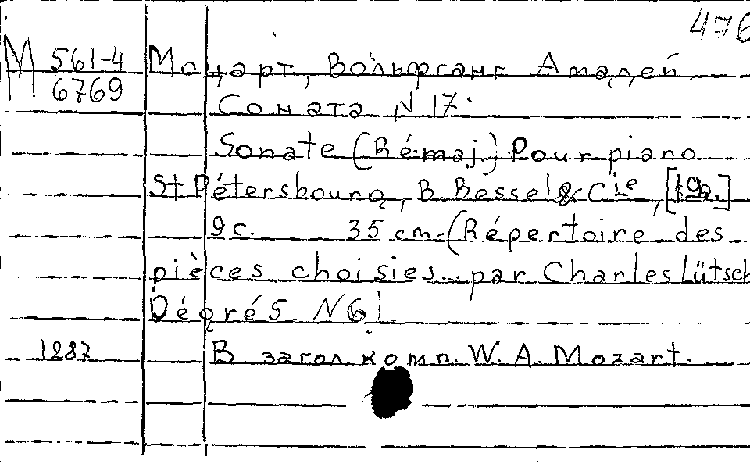 476
М 561-4 Моцарт, Вольфганг Амадей
6769
Соната N 17.
Sonate (Rémaj.) Pour piano
St Pétersbourg, B. Bessel & Cie,
9 с. 35 cm. (Répertoire des
pièces choisies par Charles Lütsch
Degré 5 N 6)
1287 В загол. комп. W. A. Mozart.